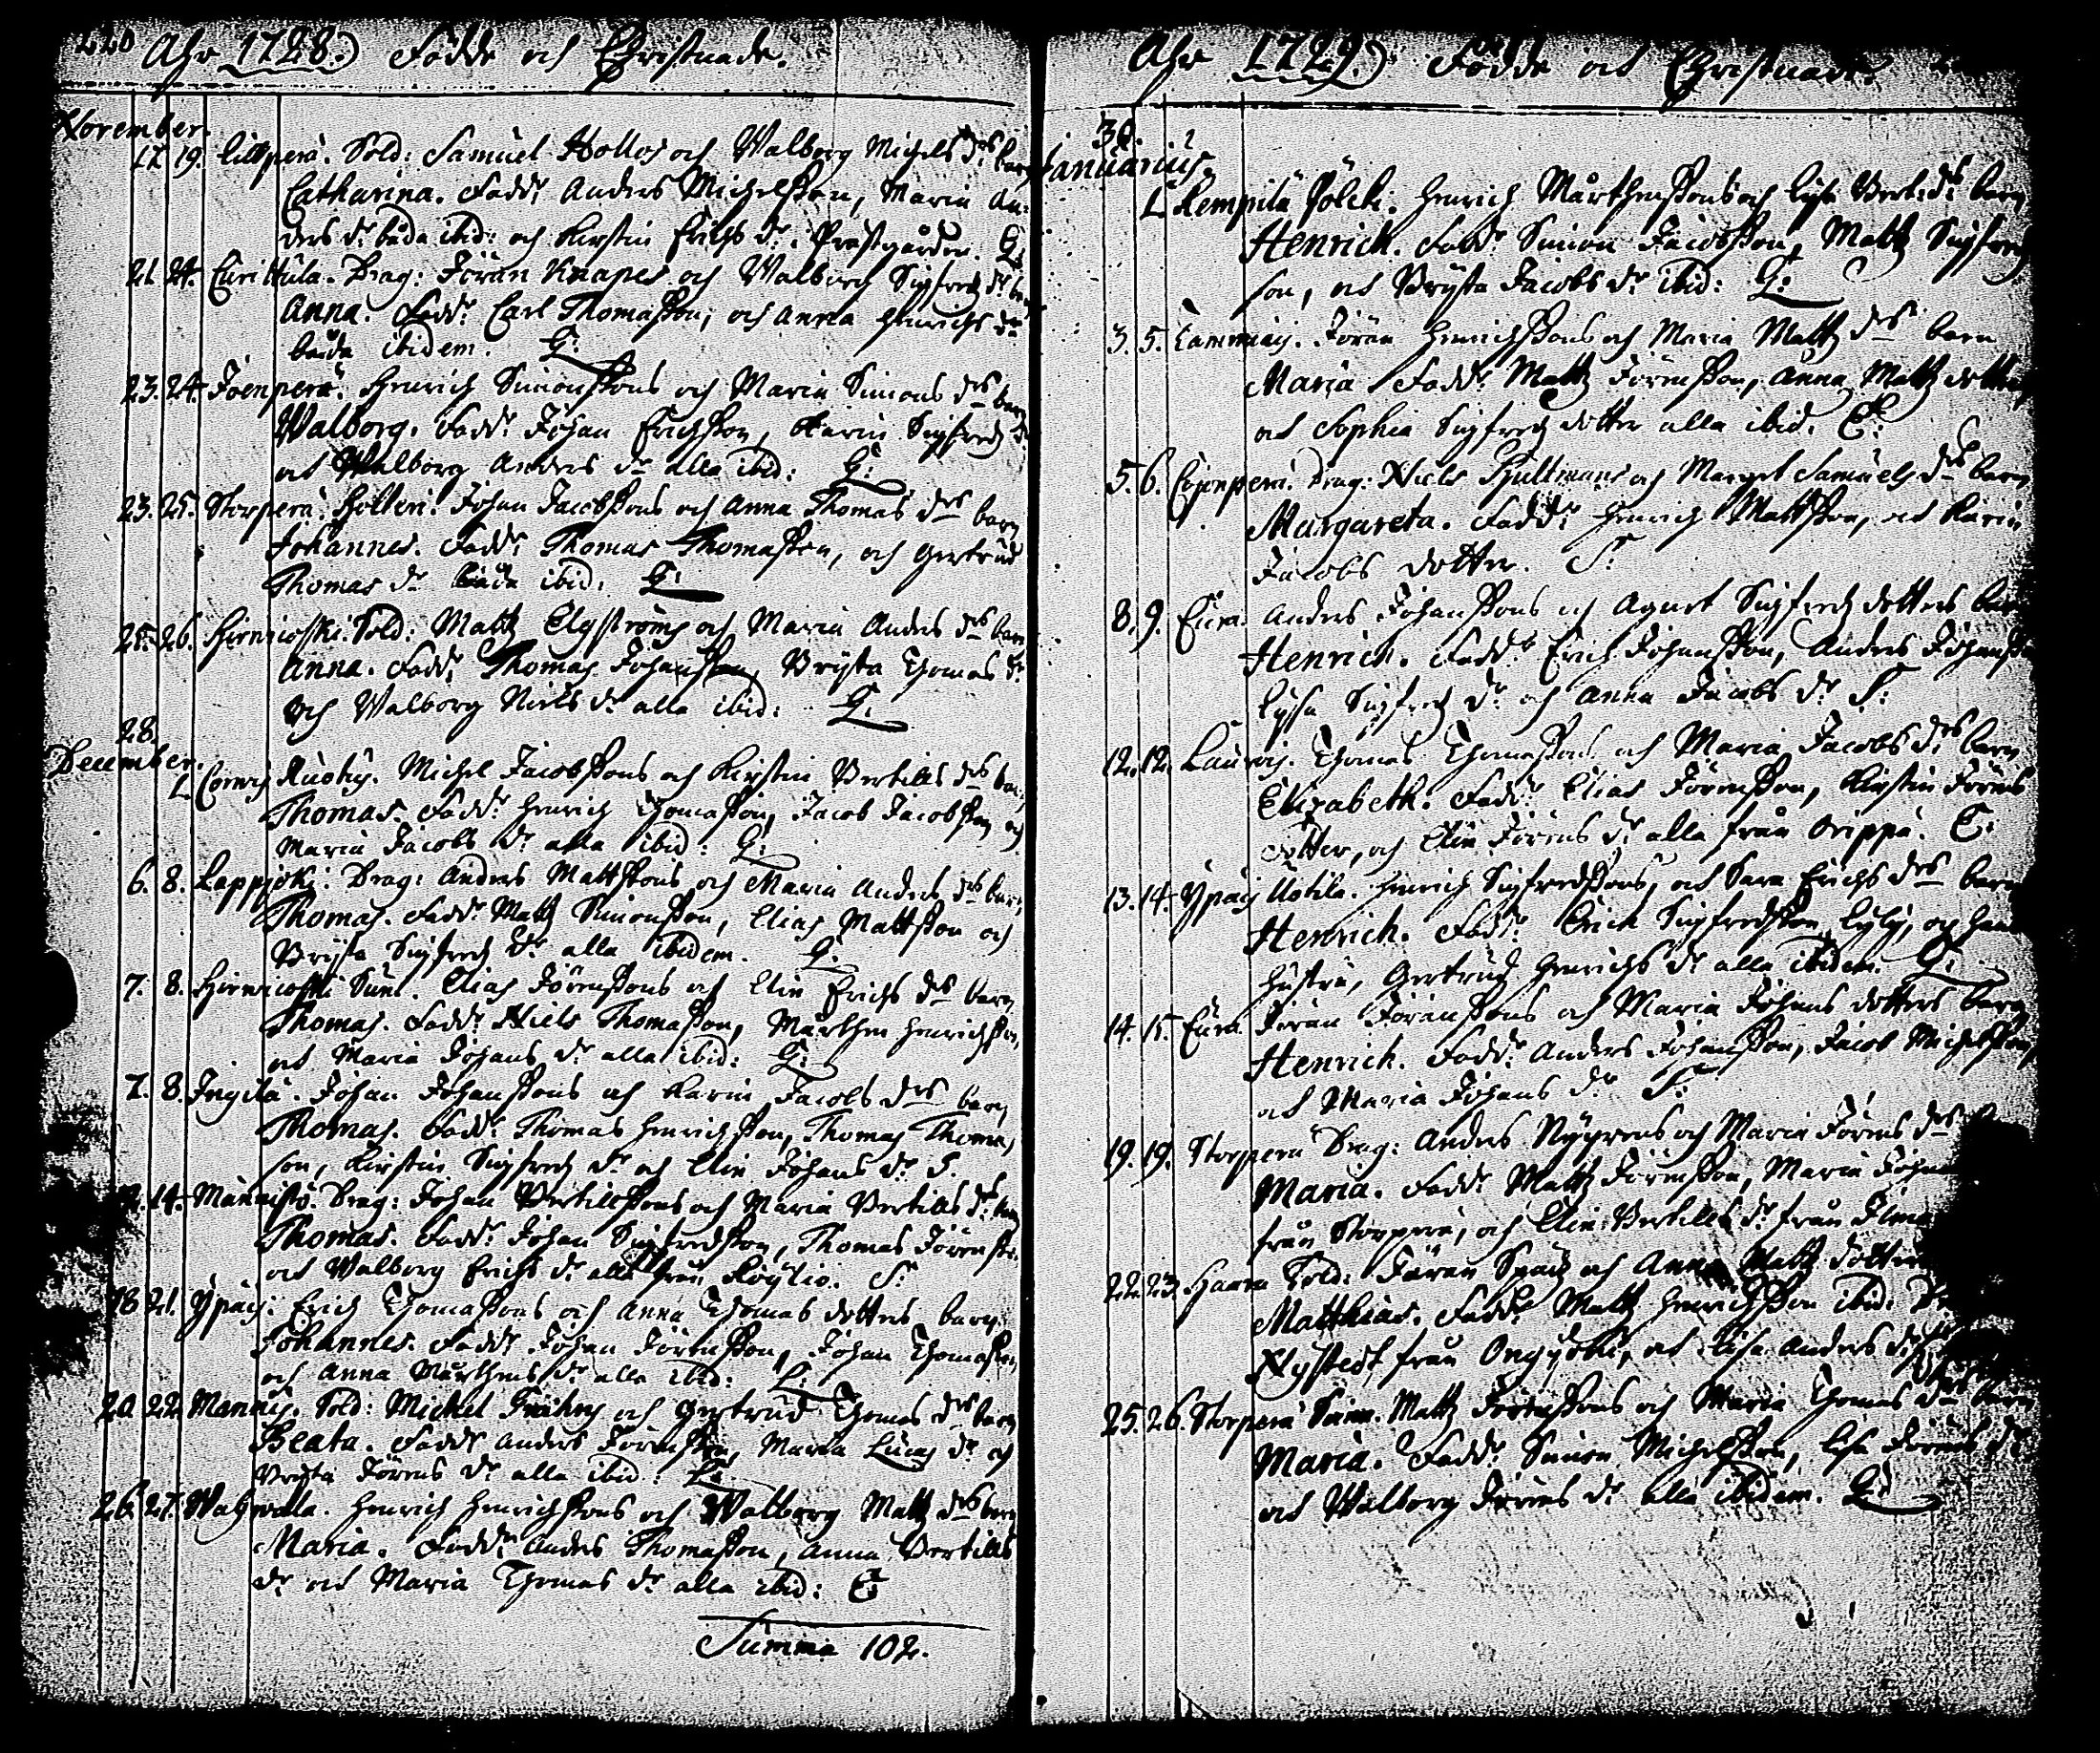 220 Åhr 1728. Födde och Christnade.
November.
17. 19. Lillperä. Sold: Samuel Hollos och Walborg Michels drs barn
Catharina. Fadd: Anders Michelsson, Maria An-
ders dr båda ibid: och Kirstin Erichs dr i Prästgården. G:
21. 24. Curittula. Drag: Jöran Knapes och Walborg Sigfredz drs barn
Anna. Fadd: Carl Thomasson, och Anna Henrichs dr
båda ibidem. G:
23. 24. Joenperä. Henrich Simonssons och Maria Simons drs barn
Walborg. Fadd: Johan Erichsson, Karin Sigfredz dr
och Walborg Anders dr alla ibid: G:
23. 25. Storperä. Johan Jacobssons och Anna Thomas drs barn
Johannes. Fadd: Thomas Thomasson, och Gertrud
Thomas dr båda ibid: G:
25. 26. Hirvikoski. Sold: Mattz Elgströms och Maria Anders drs barn
Anna. Fadd: Thomas Johansson, Brijta Thomas dr
och Walborg Niels dr alla ibid: G:
28.
December.
1. Ruohu. Michel Jacobssons och Kirstin Bertills drs barn
Thomas. Fadd: Henrich Thomasson, Jacob Jacobsson och
Maria Jacobs dr alla ibid: G:
6. 8. Lappjoki. Drag: Anders Mattssons och Maria Anders drs barn
Thomas. Fadd: Mattz Simonsson, Elias Mattsson och
Brijta Sigfredz dr alla ibidem. G:
7. 8. Hirvikoski Suni. Elias Jörenssons och Elin Erichs drs barn
Thomas. Fadd: Niels Thomasson, Mårthen Henrichsson,
och Maria Johans dr alla ibid: G:
7. 8. Ingila. Johan Johanssons och Karin Jacobs drs barn
Thomas. Fadd: Thomas Henrichsson, Thomas Thomas
son, Kirstin Sigfredz dr och Elin Johans dr S.
14. Männistö. Drag: Johan Bertillssons och Maria Bertills drs barn
Thomas. Fadd: Johan Sigfredsson, Thomas Jörensson
och Walborg Erichs dr alla från Köyliö. S:
18 21. Ypäij. Erich Thomassons och Anna Thomas dotters barn
Johannes. Fadd: Johan Jörensson, Johan Thomasson,
och Anna Mårthens dr alla ibid: G:
20 22. Mannis. Sold: Michel och Gertrud Thomas drs barn
Beata. Fadd: Anders Jörensson, Maria Lucas dr och
Brijta Jörens dr alla ibid: G:
26. 27. Henrich Henrichssons och Walborg Mattz drs barn
Maria. Fadd: Anders Thomasson, Anna Bertills
dr och Maria Thomas dr alla ibid: E:
Summa 102.
Åhr 1729. Födde och Christnade.
30.
Januarius.
1. Kempilä Pölcki. Henrich Mårthenssons och Lijsa Bert: drs barn
Henrich. Fadd: Simon Jacobsson, Mattz Sigfreds
son, och Brijta Jacobs dr ibid: G:
3. 5. Tammiais. Jören Henrichssons och Maria Mattz drs barn
Maria. Fadd: Mattz Jörensson, Anna Mattz dotter
och Sophia Sigfredz dotter alla ibid. E:
5. 6. Drag: Niels Hultmans och Marget Samuels drs barn
Margareta. Fadd: Henrich Mattsson, och Karin
Jacobs dotter. S:
8. 9. Eura. Anders Johanssons och Agnet Sigfredz dotters barn
Henrich. Fadd: Erich Johansson, Anders Johansson
Lijsa Sigfredz dr och Anna Jacobs dr S:
12. 12. Lauroij. Thomas Thomassons och Maria Jacobs drs barn
Elizabeth. Fadd: Elias Jörensson, Kirstin Jörens
dotter, och Elin Jörens dr alla från Orippä. E:
13. 14. Ypäij Uotila. Henrich Sigfredssons, och Sara Erichs drs barn
Henrich. Fadd: Erich Sigfredsson och hans
hustru, Gertrud Henrichs dr alla ibidem. G:
14. 15. Eura. Jören Jörenssons och Maria Johans dotters barn
Henrich. Fadd: Anders Johansson, Jacob Michelsson,
och Maria Johans dr S:
19. 19. Storperä Drag: Anders Nygrens och Maria Jörens drs
Maria. Fadd: Mattz Jörensson, Maria Johans
från Storperä, och Elin Bertills dr från
22. 23. Haara Sold: Jören och Anna Mattz dotters
Matthias. Fadd: Mattz Henrichsson ibid:
Nystedt från Ongijoki, och Lisa Anders dr
25. 26. Storperä Mattz Jörenssons och Maria Thomas drs barn
Maria. Fadd: Simon Michelsson, Lisa Jörens dr
och Walborg Jörens dr alla ibidem. G: